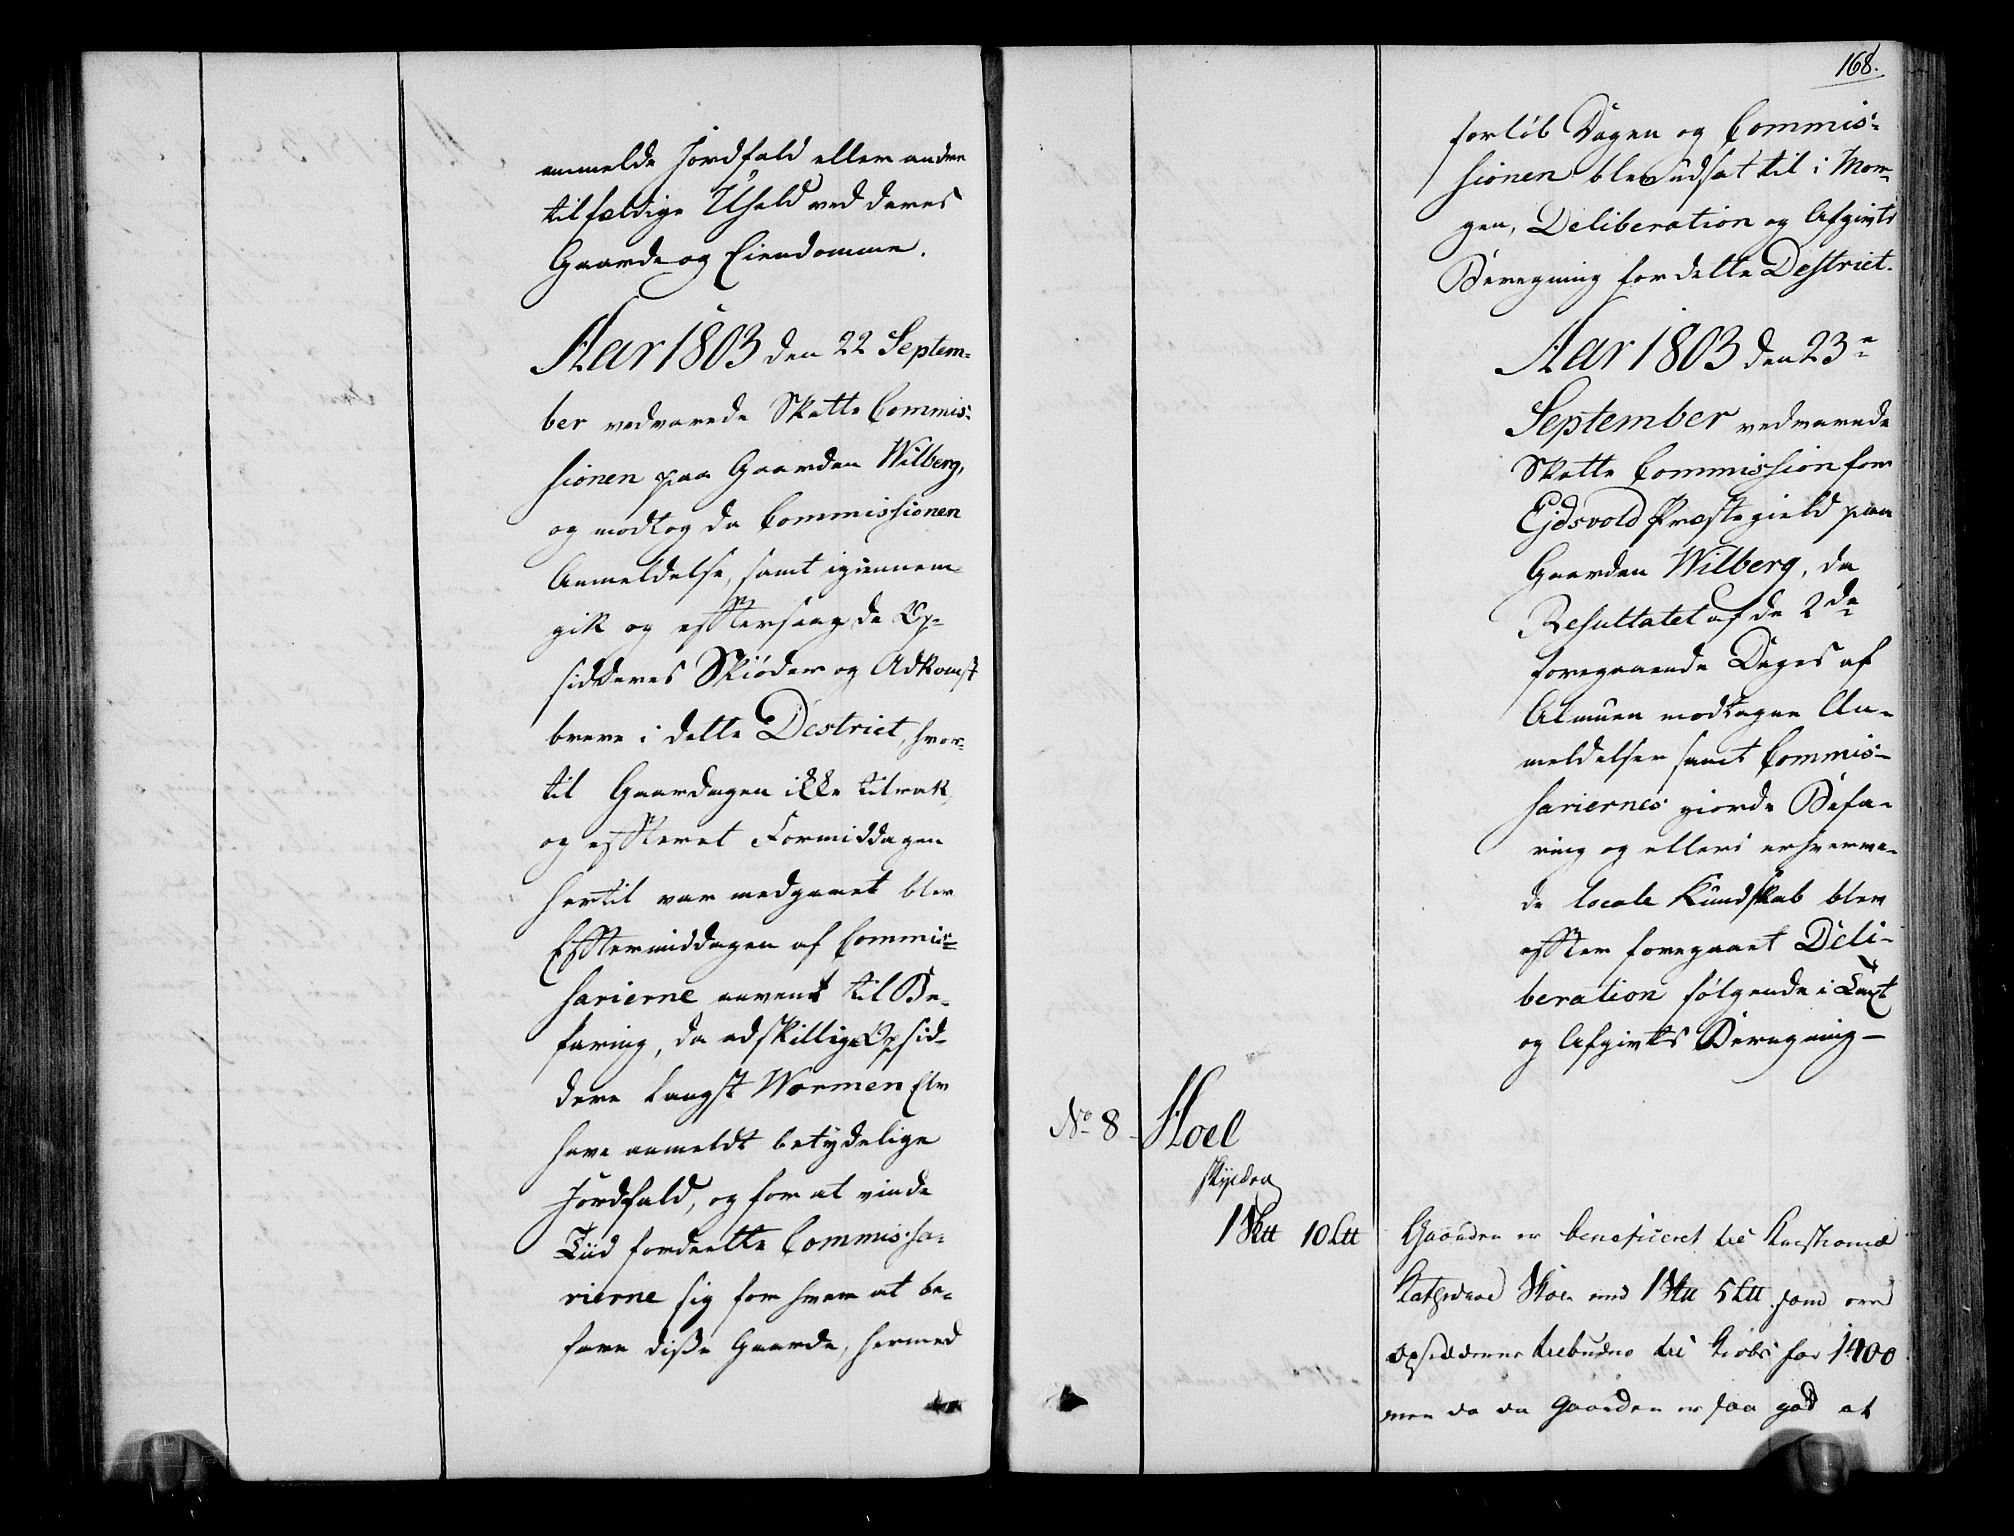 anmelde Jordfald eller andre
tilfældige Uheld ved deres
Gaarde og Eiendomme.
Aar 1803 den 22 Septem-
ber vedvarede Skatte Commis-
sionen paa Gaarden Wilberg,
og modtog da Commissionen
Anmeldelse, samt igiennem-
gik og eftersaag de Op-
sidderes Skiøder og Adkomst
breve i dette Destrict, hvor-
til Gaardagen ikke tilrak,
og efteret Formiddagen
hertil var medgaaet blev
Eftermiddagen af Commis-
sarierne anvent til Be-
faring, da adskillige Opsid-
dere langst Wormen Elv
have anmeldt betydelige
Jordfald, og for at vinde
Tiid fordeelte Commissa-
rierne sig for hver at be-
fare disse Gaarde, hermed
168.
forløb Dagen og Commis-
sionen blev udsat til i Mor-
gen, Deliberation og Afgivts
Beregning for dette Destrict.
Aar 1803 den 23e
September vedvarede
Skatte Commission for
Ejdsvold Præstegield paa
Gaarden Wilberg, da
Resultatet af de 2de
foregaaende Dages af
Almuen modtagne An-
meldelser samt Commis-
sariernes giorde Befa-
ring og ellers erhverve-
de locale Kundskab blev
efter foregaaet Deli-
beration følgende i Taxt
og Afgivts Beregning —
No 8 Hoel
skylder
1 Sktt 10 Ltt
Gaarden er beneficeret til
med 1 Sktt 5 Ltt som er
Opsidderne tilbuden til Kiøbs for 1400
men da da Gaarden er saa god at